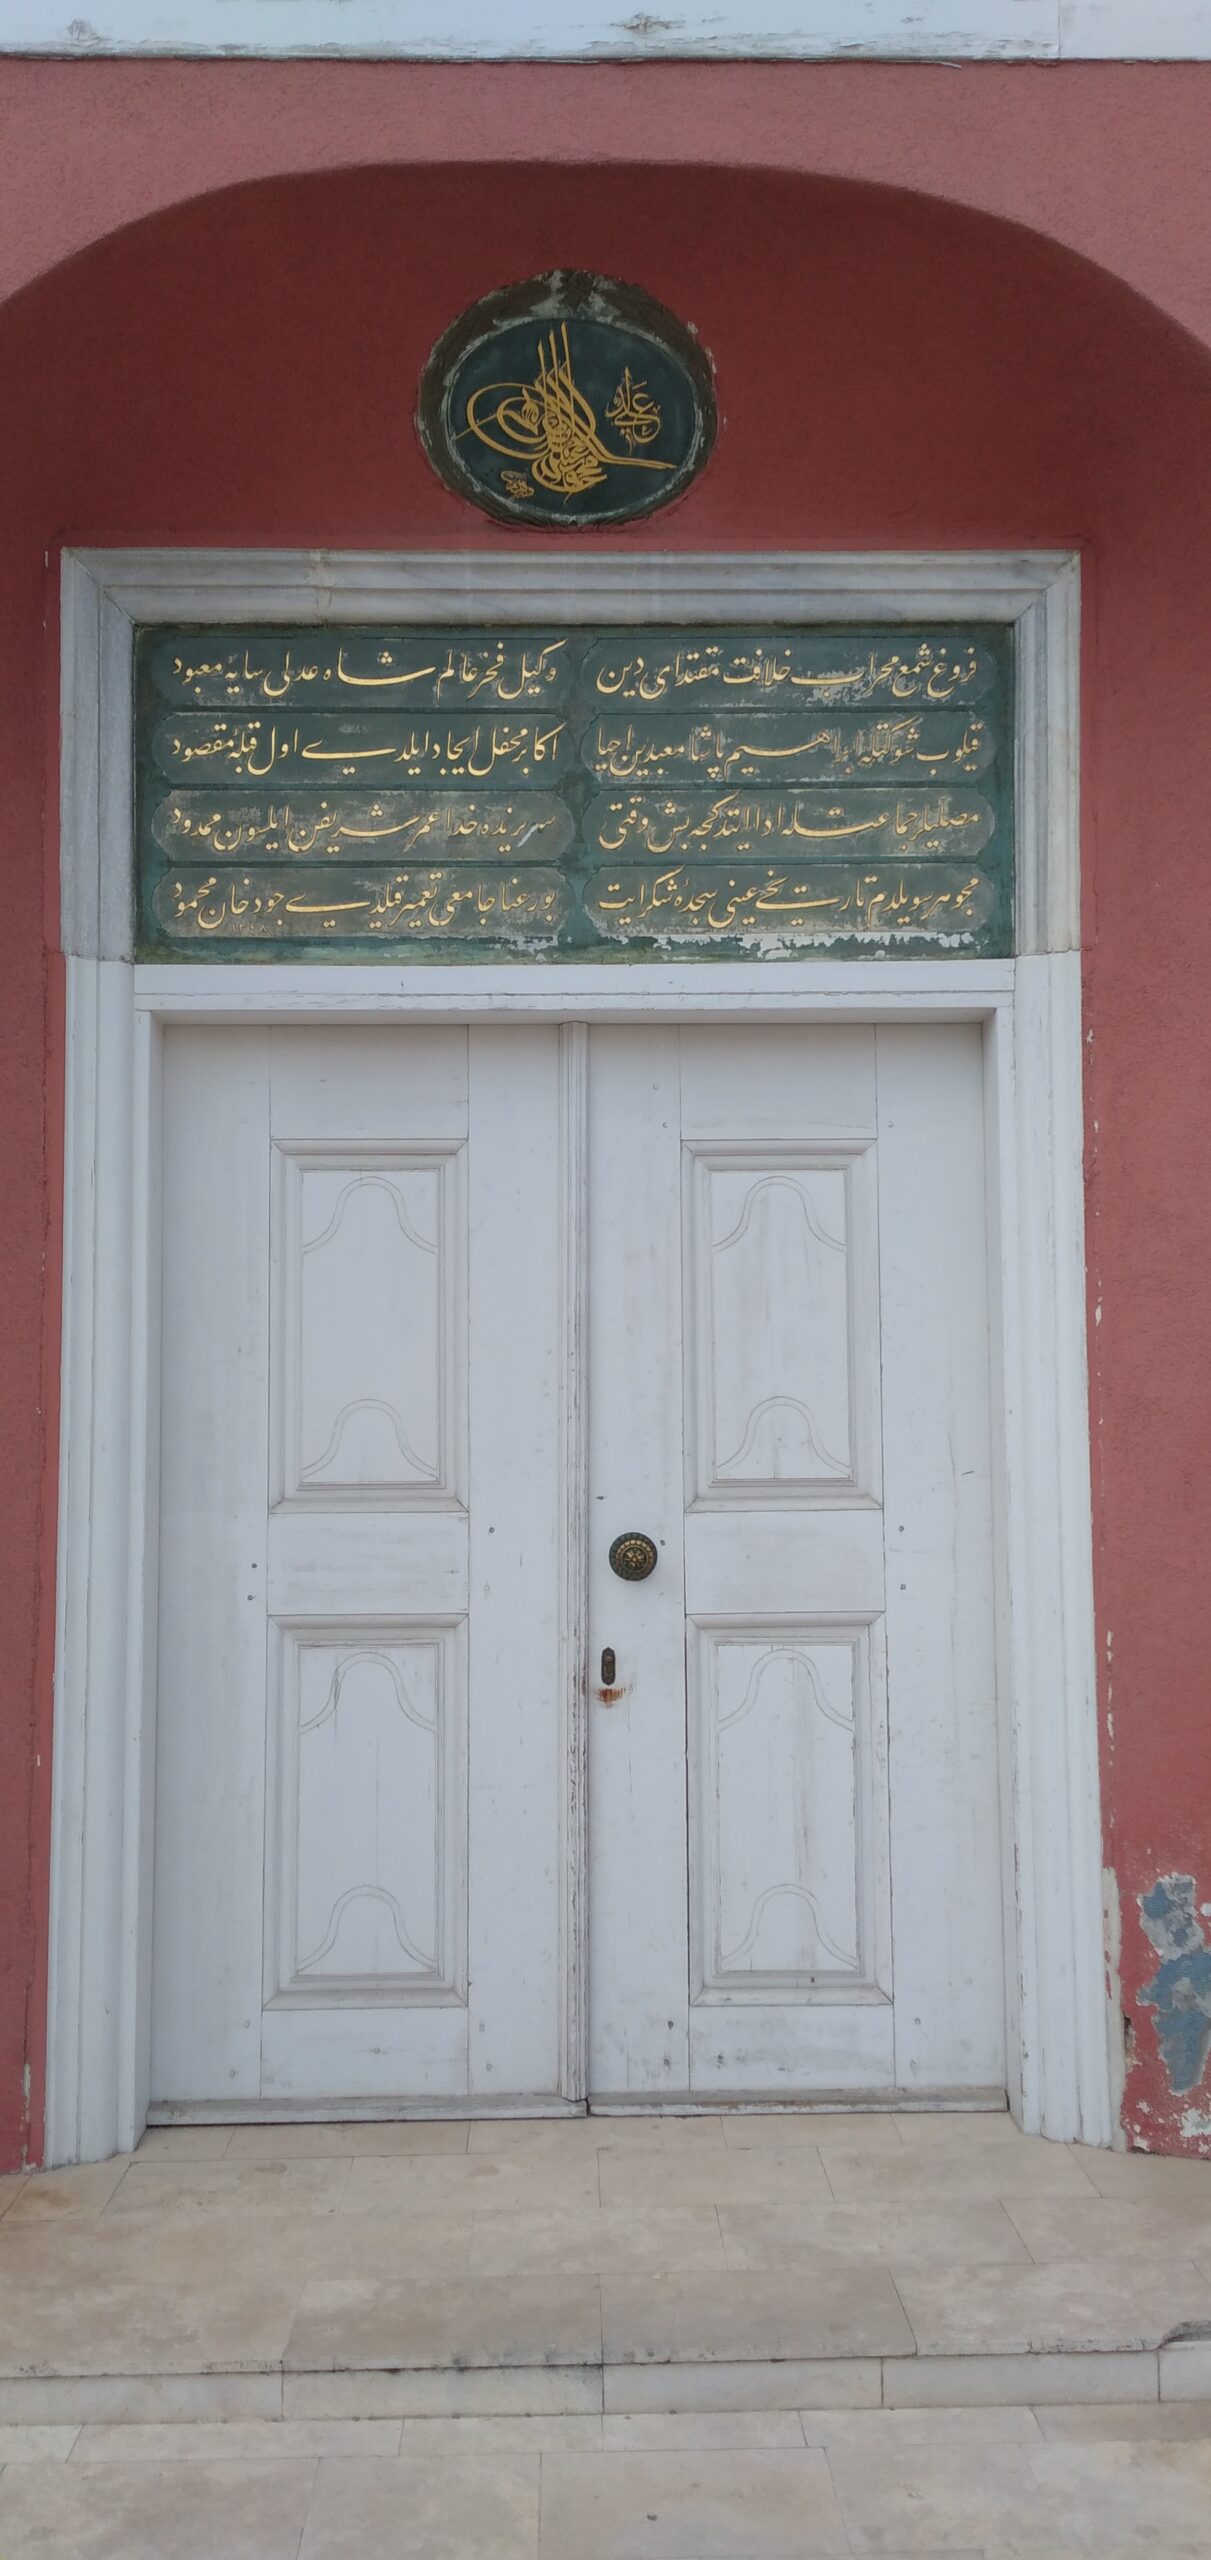 عدلی
فروغ شمع محراب خلافت مقتدای دین
وکیل فخر عالم شاه عدلی سایهٔ معبود
قیلوب شوکتله ابراهیم پاشا معبدین احیا
اکابر محفل ایجاد ایلدی اول قبلهٔ مقصود
مصلیلر جماعتله ادا ایتدکجه بش وقتی
سریرنده خدا عمر شریفن ایلسون ممدود
مجوهر سویلدم تاریخی عینی سجدهٔ شکر ایت
بو رعنا جامعی تعمیر قیلدی جود خان محمود